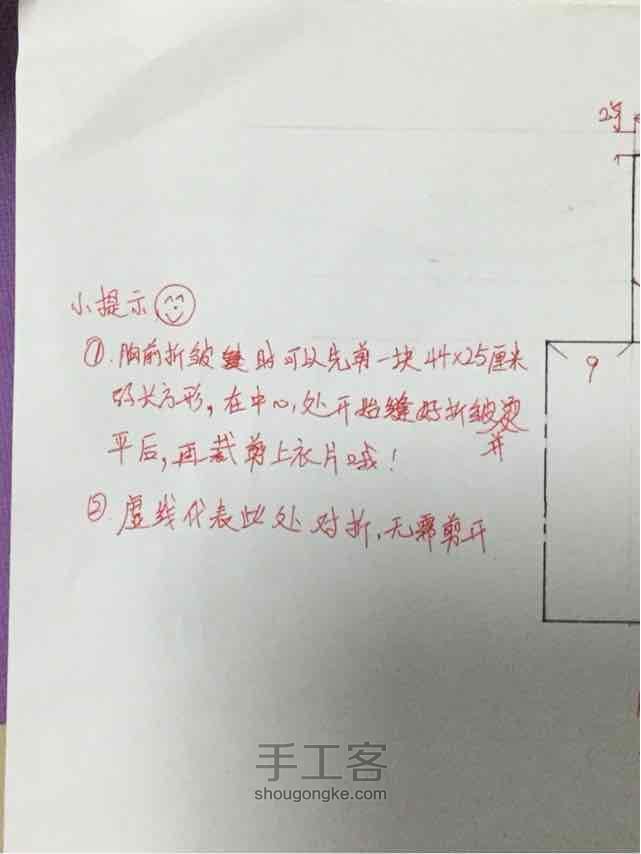 小提示
①.胸前折皱缝时可以先剪一块44×25厘米
的长方形,在中心处开始缝好折皱并烫
平后,再裁剪上衣片哦!
②.虚线代表此处对折,无需剪开
9
手工客
shougongke.com